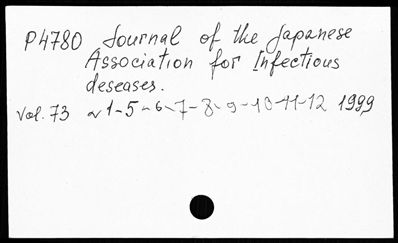 P4780 Journal of the Japanese
Association for Infectious
deseases.
Vol. 73 N 1-5-6-7-8-9-10-11-12 1999